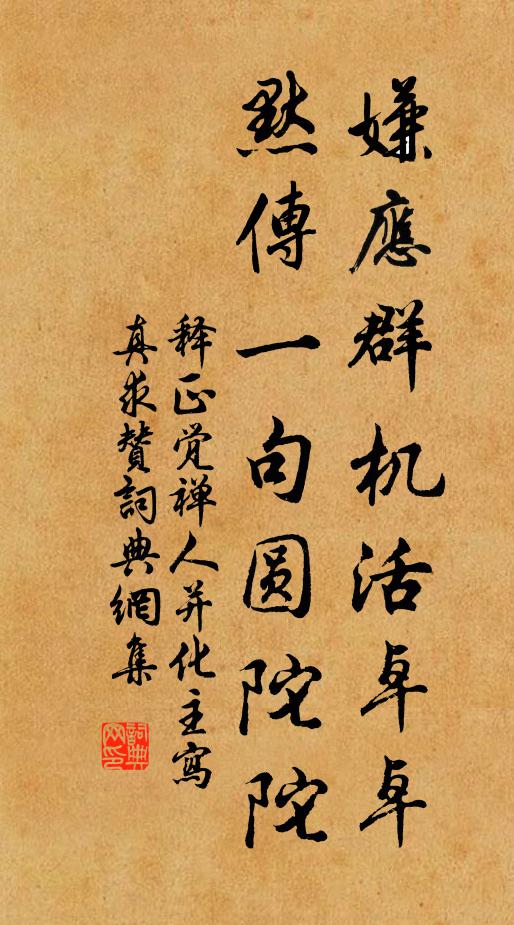 嫌應群机活卓卓
默傳一句圓陀陀
释正觉禅人并化主寫
真求赞詞典網集
詞典網印